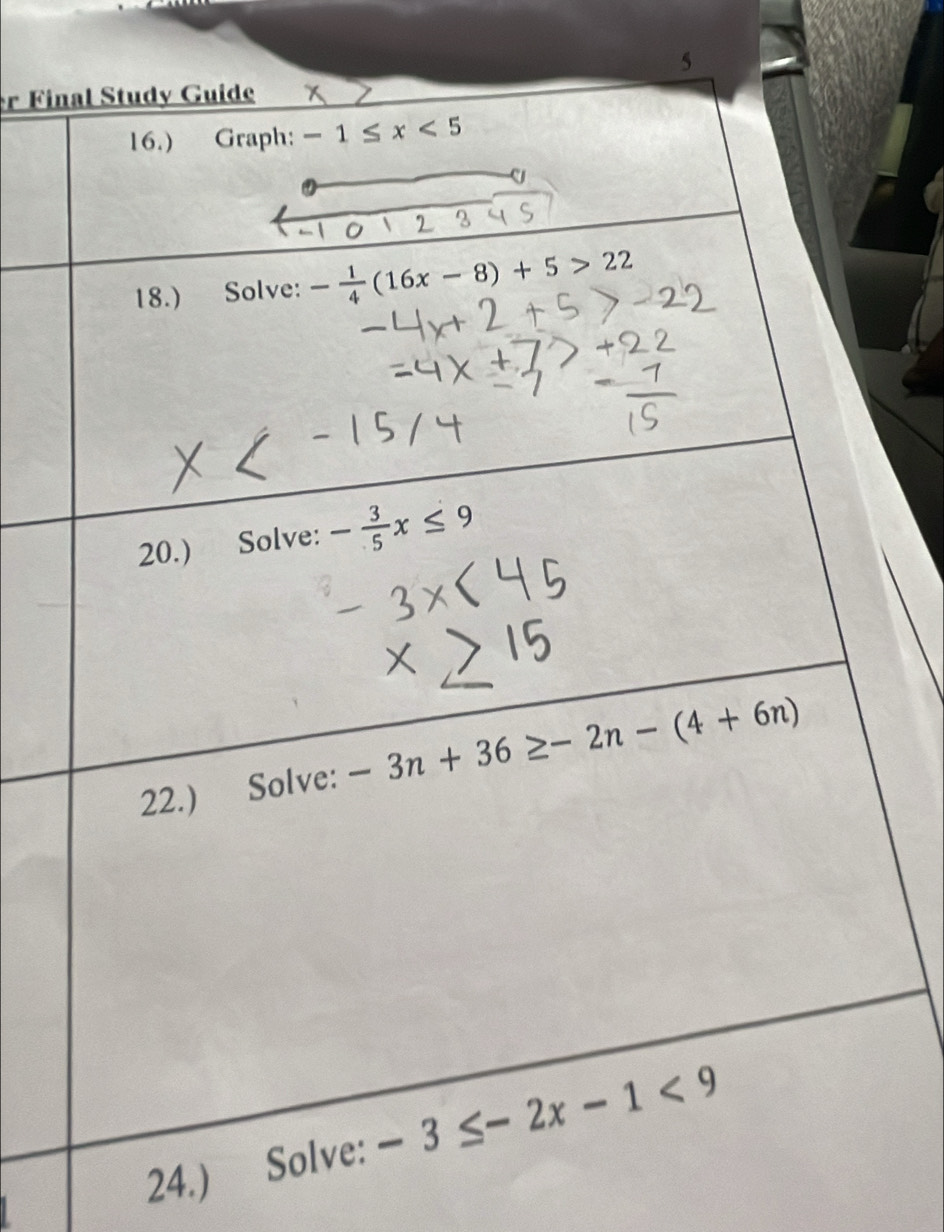 5
er Final Study Guide x >
16.) Graph: - 1 ≤ x < 5
-1 0 1 2 3 4 5
18.) Solve: - 1/4 (16x - 8) + 5 > 22
-4x + 2 + 5 > -22
=4x + 7 > +22
- 7 - 7
15
x < -15/4
20.) Solve: - 3/5 x ≤ 9
- 3x < 45
x ≥ 15
22.) Solve: - 3n + 36 ≥ - 2n - (4 + 6n)
24.) Solve: - 3 ≤ - 2x - 1 < 9